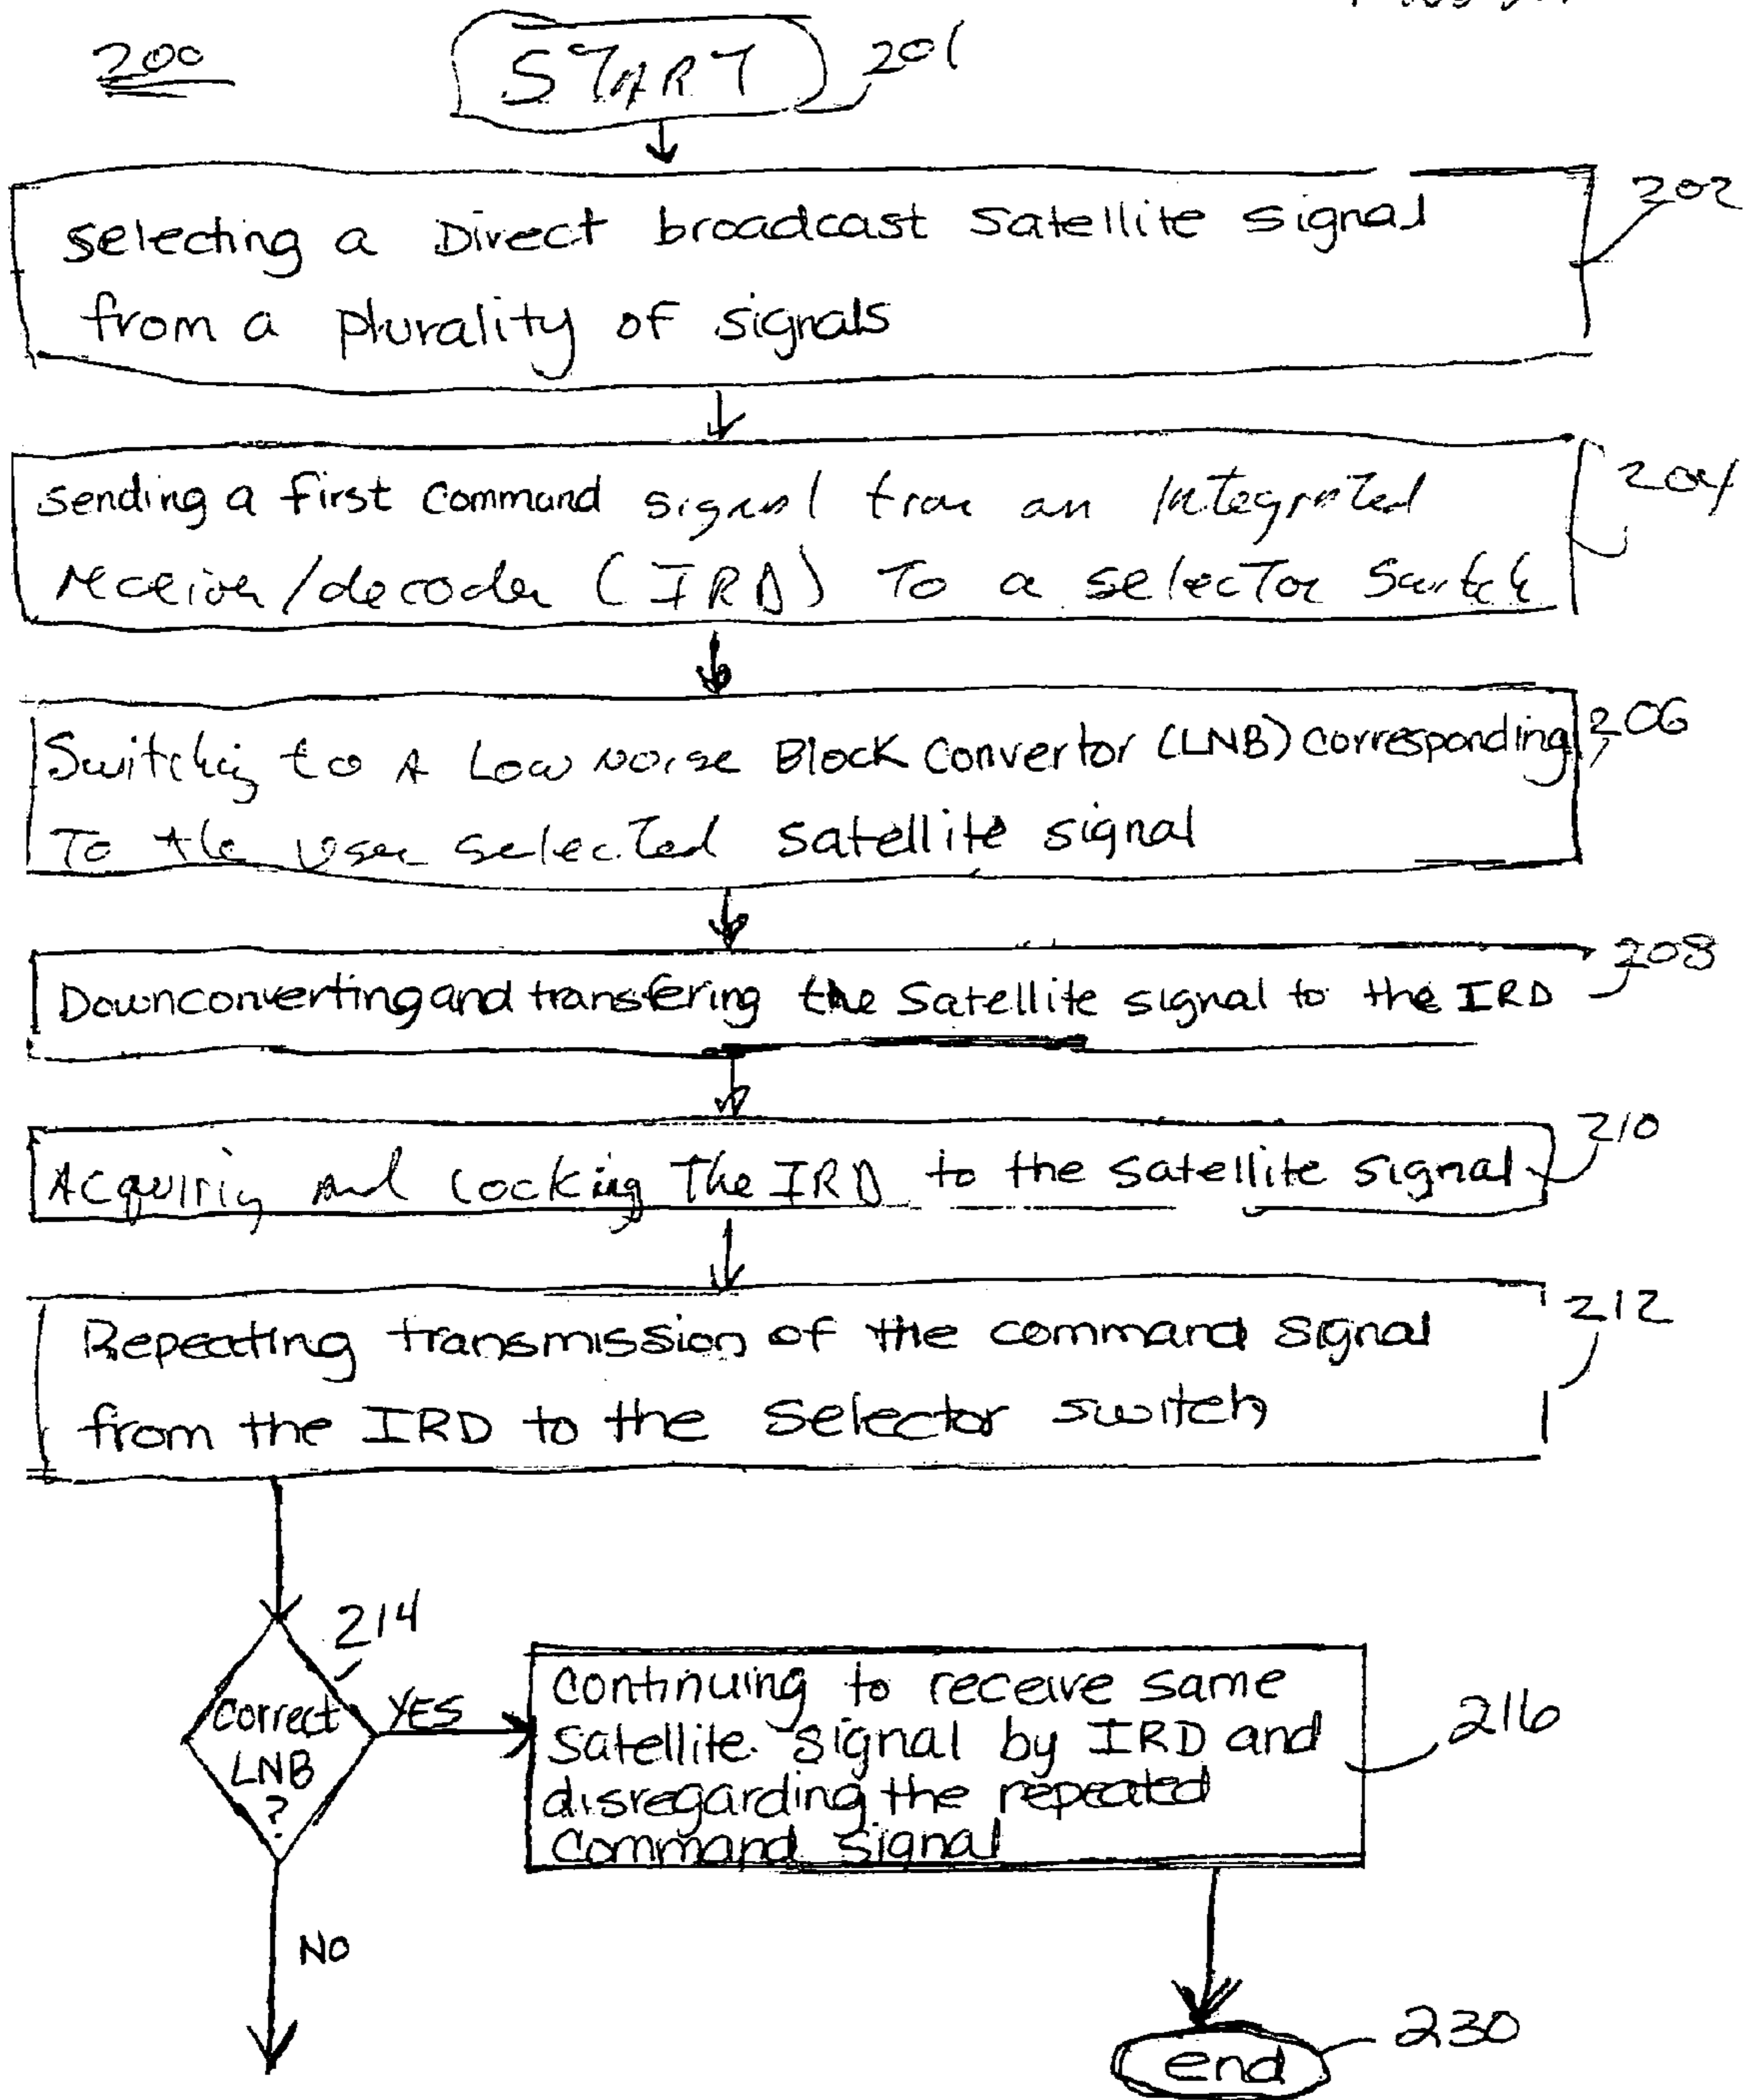 200
START 201
selecting a Direct broadcast satellite signal 202
from a plurality of signals
Sending a first command signal from an Integrated 204
receiver/decoder (IRD) To a selector Switch
Switching to A Low noise Block Convertor (LNB) corresponding 206
To the user selected satellite signal
Downconverting and transfering the Satellite signal to the IRD 208
Acquiring and Locking The IRD to the satellite signal 210
Repeating transmission of the command signal 212
from the IRD to the selector switch
214
correct
LNB
?
YES
continuing to receive same
satellite signal by IRD and
disregarding the repeated
command signal
216
NO
230
end